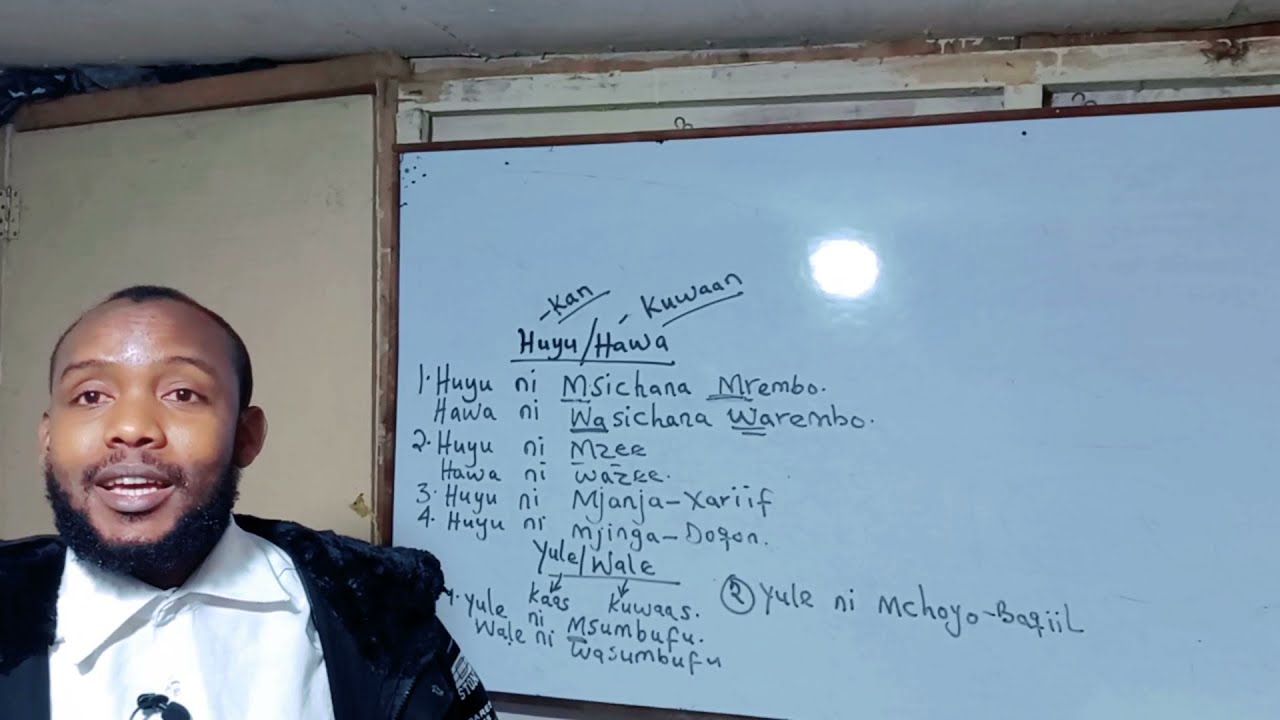 -Kan - Kuwaan
Huyu/Hawa
1. Huyu ni Msichana Mrembo.
Hawa ni Wasichana Warembo.
2. Huyu ni Mzee
Hawa ni Wazee.
3. Huyu ni Mjanja-Xariif
4. Huyu ni Mjinga-Doqon.
Yule/Wale
Kaas Kuwaas.
1. Yule ni Msumbufu.
Wale ni Wasumbufu
2 Yule ni Mchoyo-Baqiil